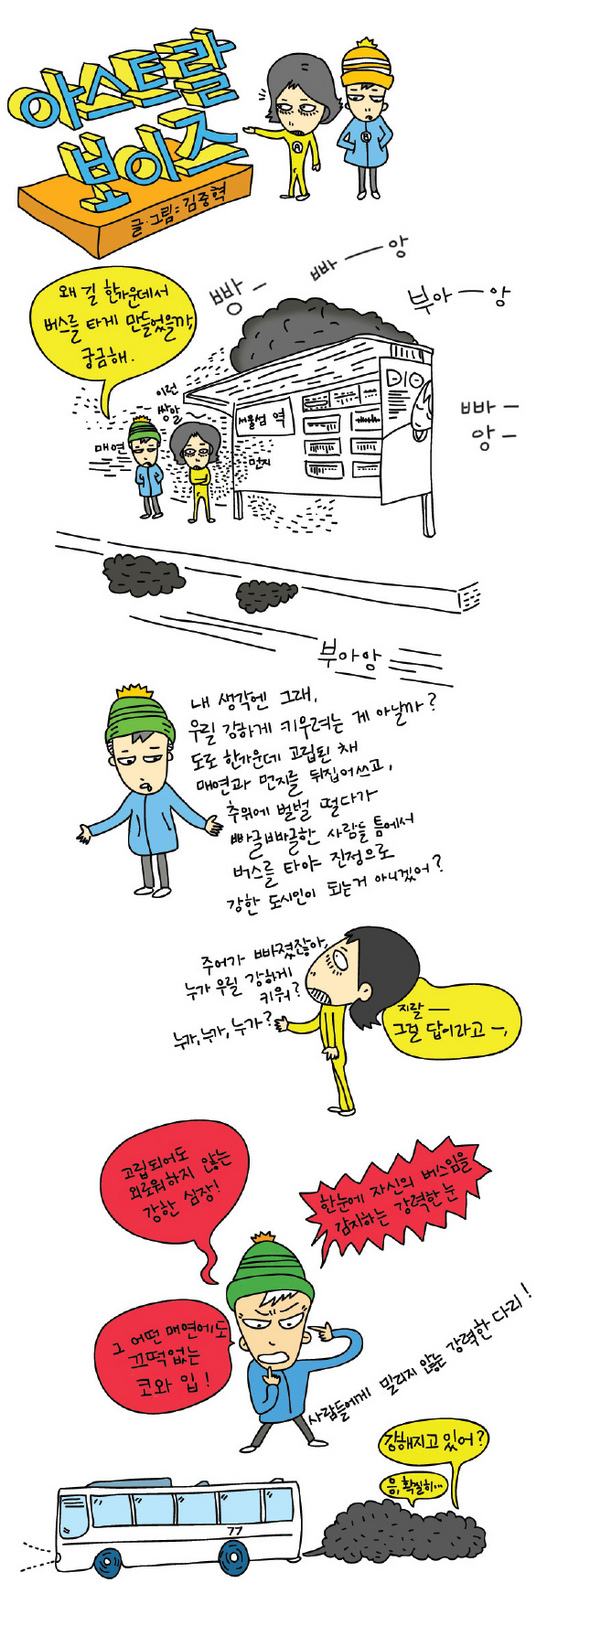 아스트랄
보이즈
글·그림=김중혁
왜 길 한가운데서
버스를 타게 만들었을까,
궁금해.
빵-
빠-앙
부아-앙
이런
쌍말
매연
먼지
서울섬 역
DIO
빠-
앙-
부아앙
내 생각엔 그래,
우릴 강하게 키우려는 게 아닐까?
도로 한가운데 고립된 채
매연과 먼지를 뒤집어쓰고,
추위에 벌벌 떨다가
빠글빠글한 사람들 틈에서
버스를 타야 진정으로
강한 도시인이 되는거 아니겠어?
주어가 빠졌잖아,
누가 우릴 강하게
키워?
누가, 누가, 누가?
지랄-
그걸 답이라고-,
고립되어도
외로워하지 않는
강한 심장!
한눈에 자신의 버스임을
감지하는 강력한 눈
그 어떤 매연에도
끄떡없는
코와 입!
사람들에게 밀리지 않는 강력한 다리!
강해지고 있어?
응, 확실히...
77